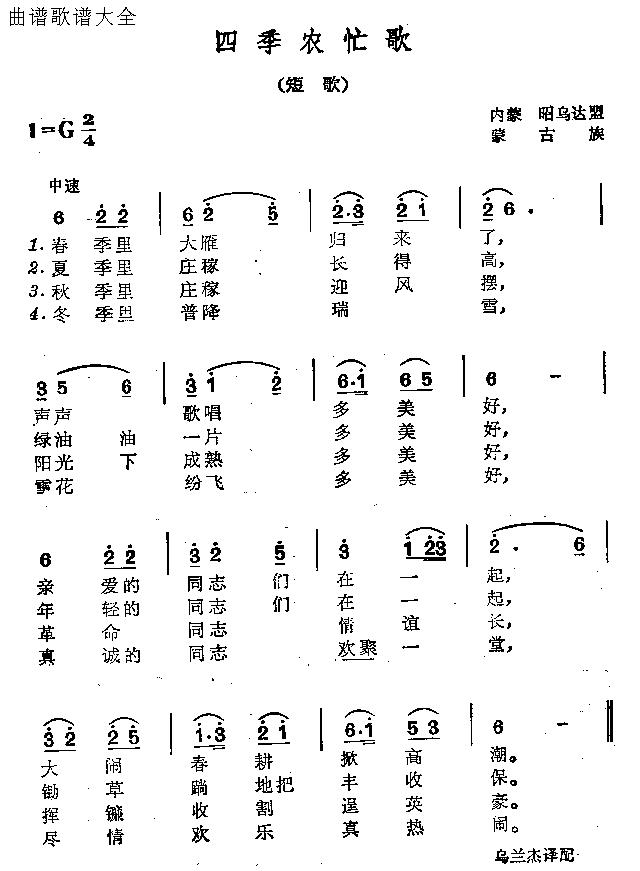 曲谱歌谱大全
四季农忙歌
(短 歌)
1=G 2/4
内蒙 昭乌达盟
蒙 古 族
中速
6 2 2 | 6 2 5 | 2·3 2 1 | 2 6 ·
1. 春 季里 大雁 归 来 了,
2. 夏 季里 庄稼 长 得 高,
3. 秋 季里 庄稼 迎 风 摆,
4. 冬 季里 普降 瑞 雪,
3 5 6 | 3 1 2 | 6·1 6 5 | 6 -
声声 歌唱 多 美 好,
绿油 油 一片 多 美 好,
阳光 下 成熟 多 美 好,
雪花 纷飞 多 美 好,
6 2 2 | 3 2 5 | 3 1 23 | 2 · 6
亲 爱的 同志 们 在 一 起,
年 轻的 同志 们 在 一 起,
革 命 同志 情 谊 长,
真 诚的 同志 欢聚 一 堂,
3 2 2 5 | 1·3 2 1 | 6·1 5 3 | 6 -
大 闹 春 耕 掀 高 潮。
锄 草 趟 地把 丰 收 保。
挥 镰 收 割 逞 英 豪。
尽 情 欢 乐 真 热 闹。
乌兰杰译配